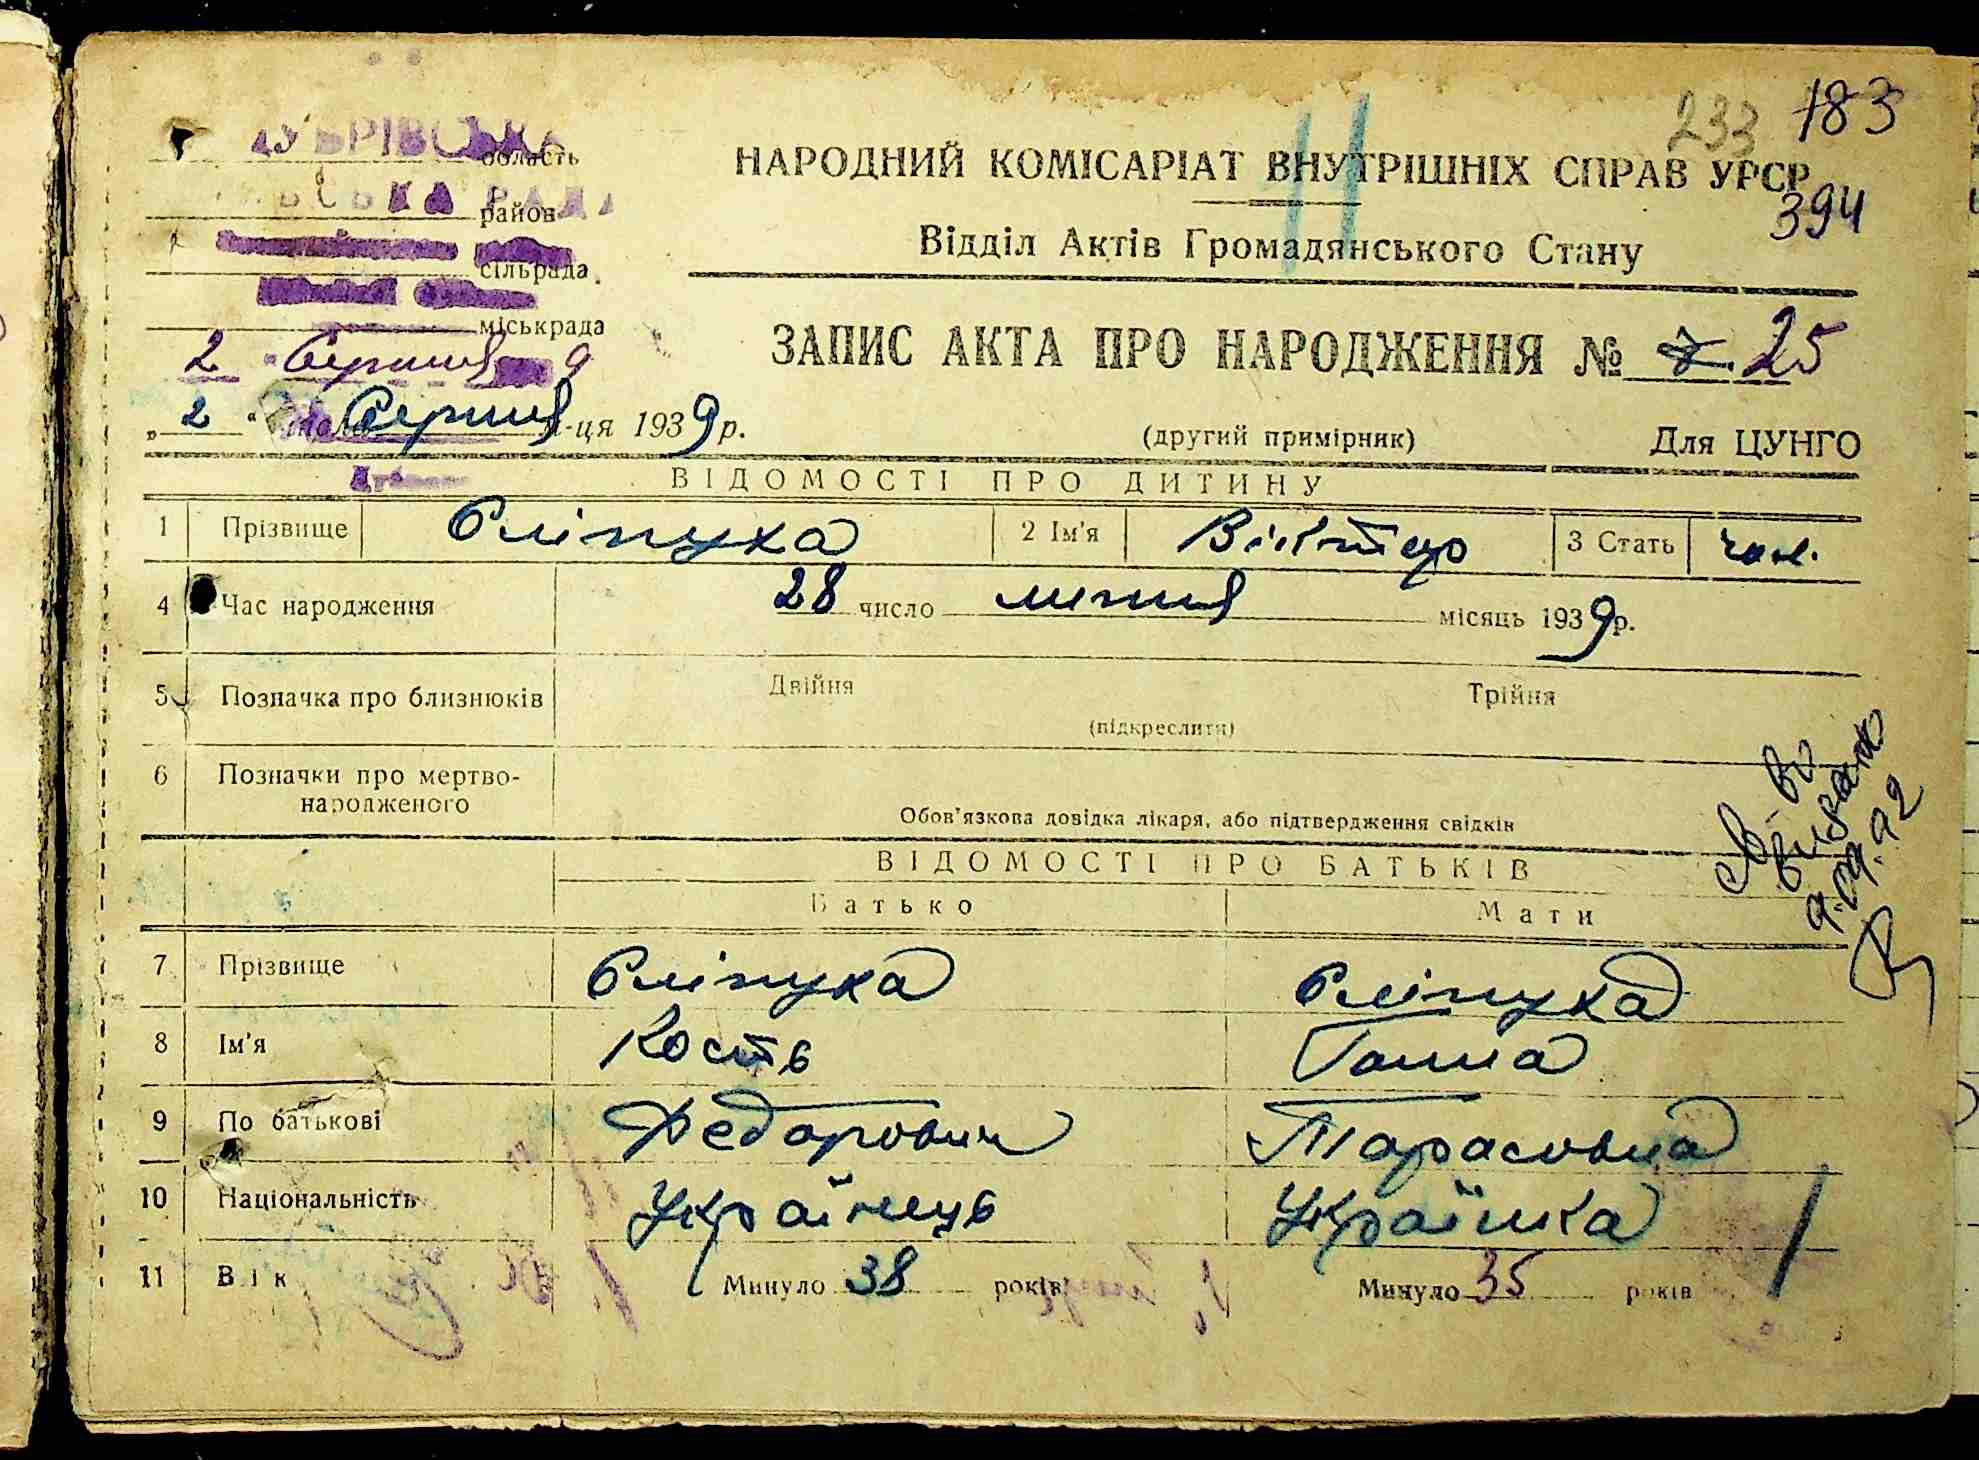 233 183
область
НАРОДНИЙ КОМІСАРІАТ ВНУТРІШНІХ СПРАВ УРСР
РАДА
район
394
Відділ Актів Громадянського Стану
сільрада
міськрада
ЗАПИС АКТА ПРО НАРОДЖЕННЯ № 7 25
2 Серпня 9
„ 2 “ Серпня м-ця 1939 р.
(другий примірник) Для ЦУНГО
ВІДОМОСТІ ПРО ДИТИНУ
1 Прізвище Сліпуха 2 Ім'я Віктор 3 Стать чол.
4 Час народження 28 число липня місяць 1939 р.
5 Позначка про близнюків Двійня Трійня
(підкреслити)
6 Позначки про мертво-
народженого
Обов'язкова довідка лікаря, або підтвердження свідків
Св-во
выдано
9.09.92
ВІДОМОСТІ ПРО БАТЬКІВ
Батько Мати
7 Прізвище Сліпуха Сліпуха
8 Ім'я Кость Ганна
9 По батькові Федорович Тарасовна
10 Національність Українець Українка
11 Вік Минуло 38 років Минуло 35 років